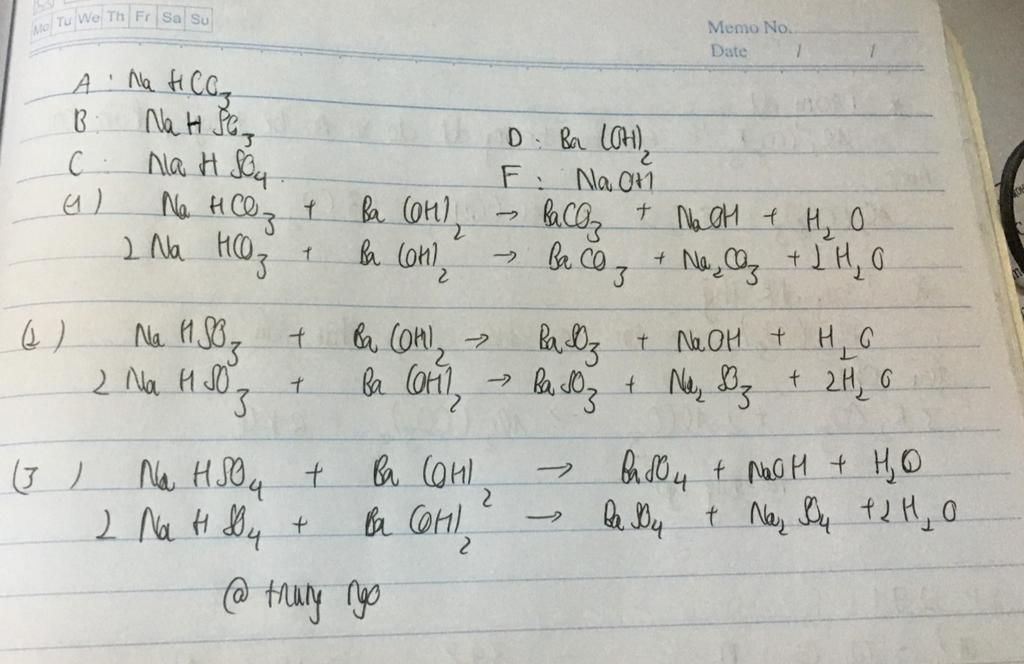 Mo Tu We Th Fr Sa Su
Memo No.
Date / /
A : NaHCO3
B : NaHSO3
D : Ba(OH)2
C : NaHSO4
F : NaOH
(1) NaHCO3 + Ba(OH)2 → BaCO3 + NaOH + H2O
2NaHCO3 + Ba(OH)2 → BaCO3 + Na2CO3 + 2H2O
(2) NaHSO3 + Ba(OH)2 → BaSO3 + NaOH + H2O
2NaHSO3 + Ba(OH)2 → BaSO3 + Na2SO3 + 2H2O
(3) NaHSO4 + Ba(OH)2 → BaSO4 + NaOH + H2O
2NaHSO4 + Ba(OH)2 → BaSO4 + Na2SO4 + 2H2O
@ trung ngo